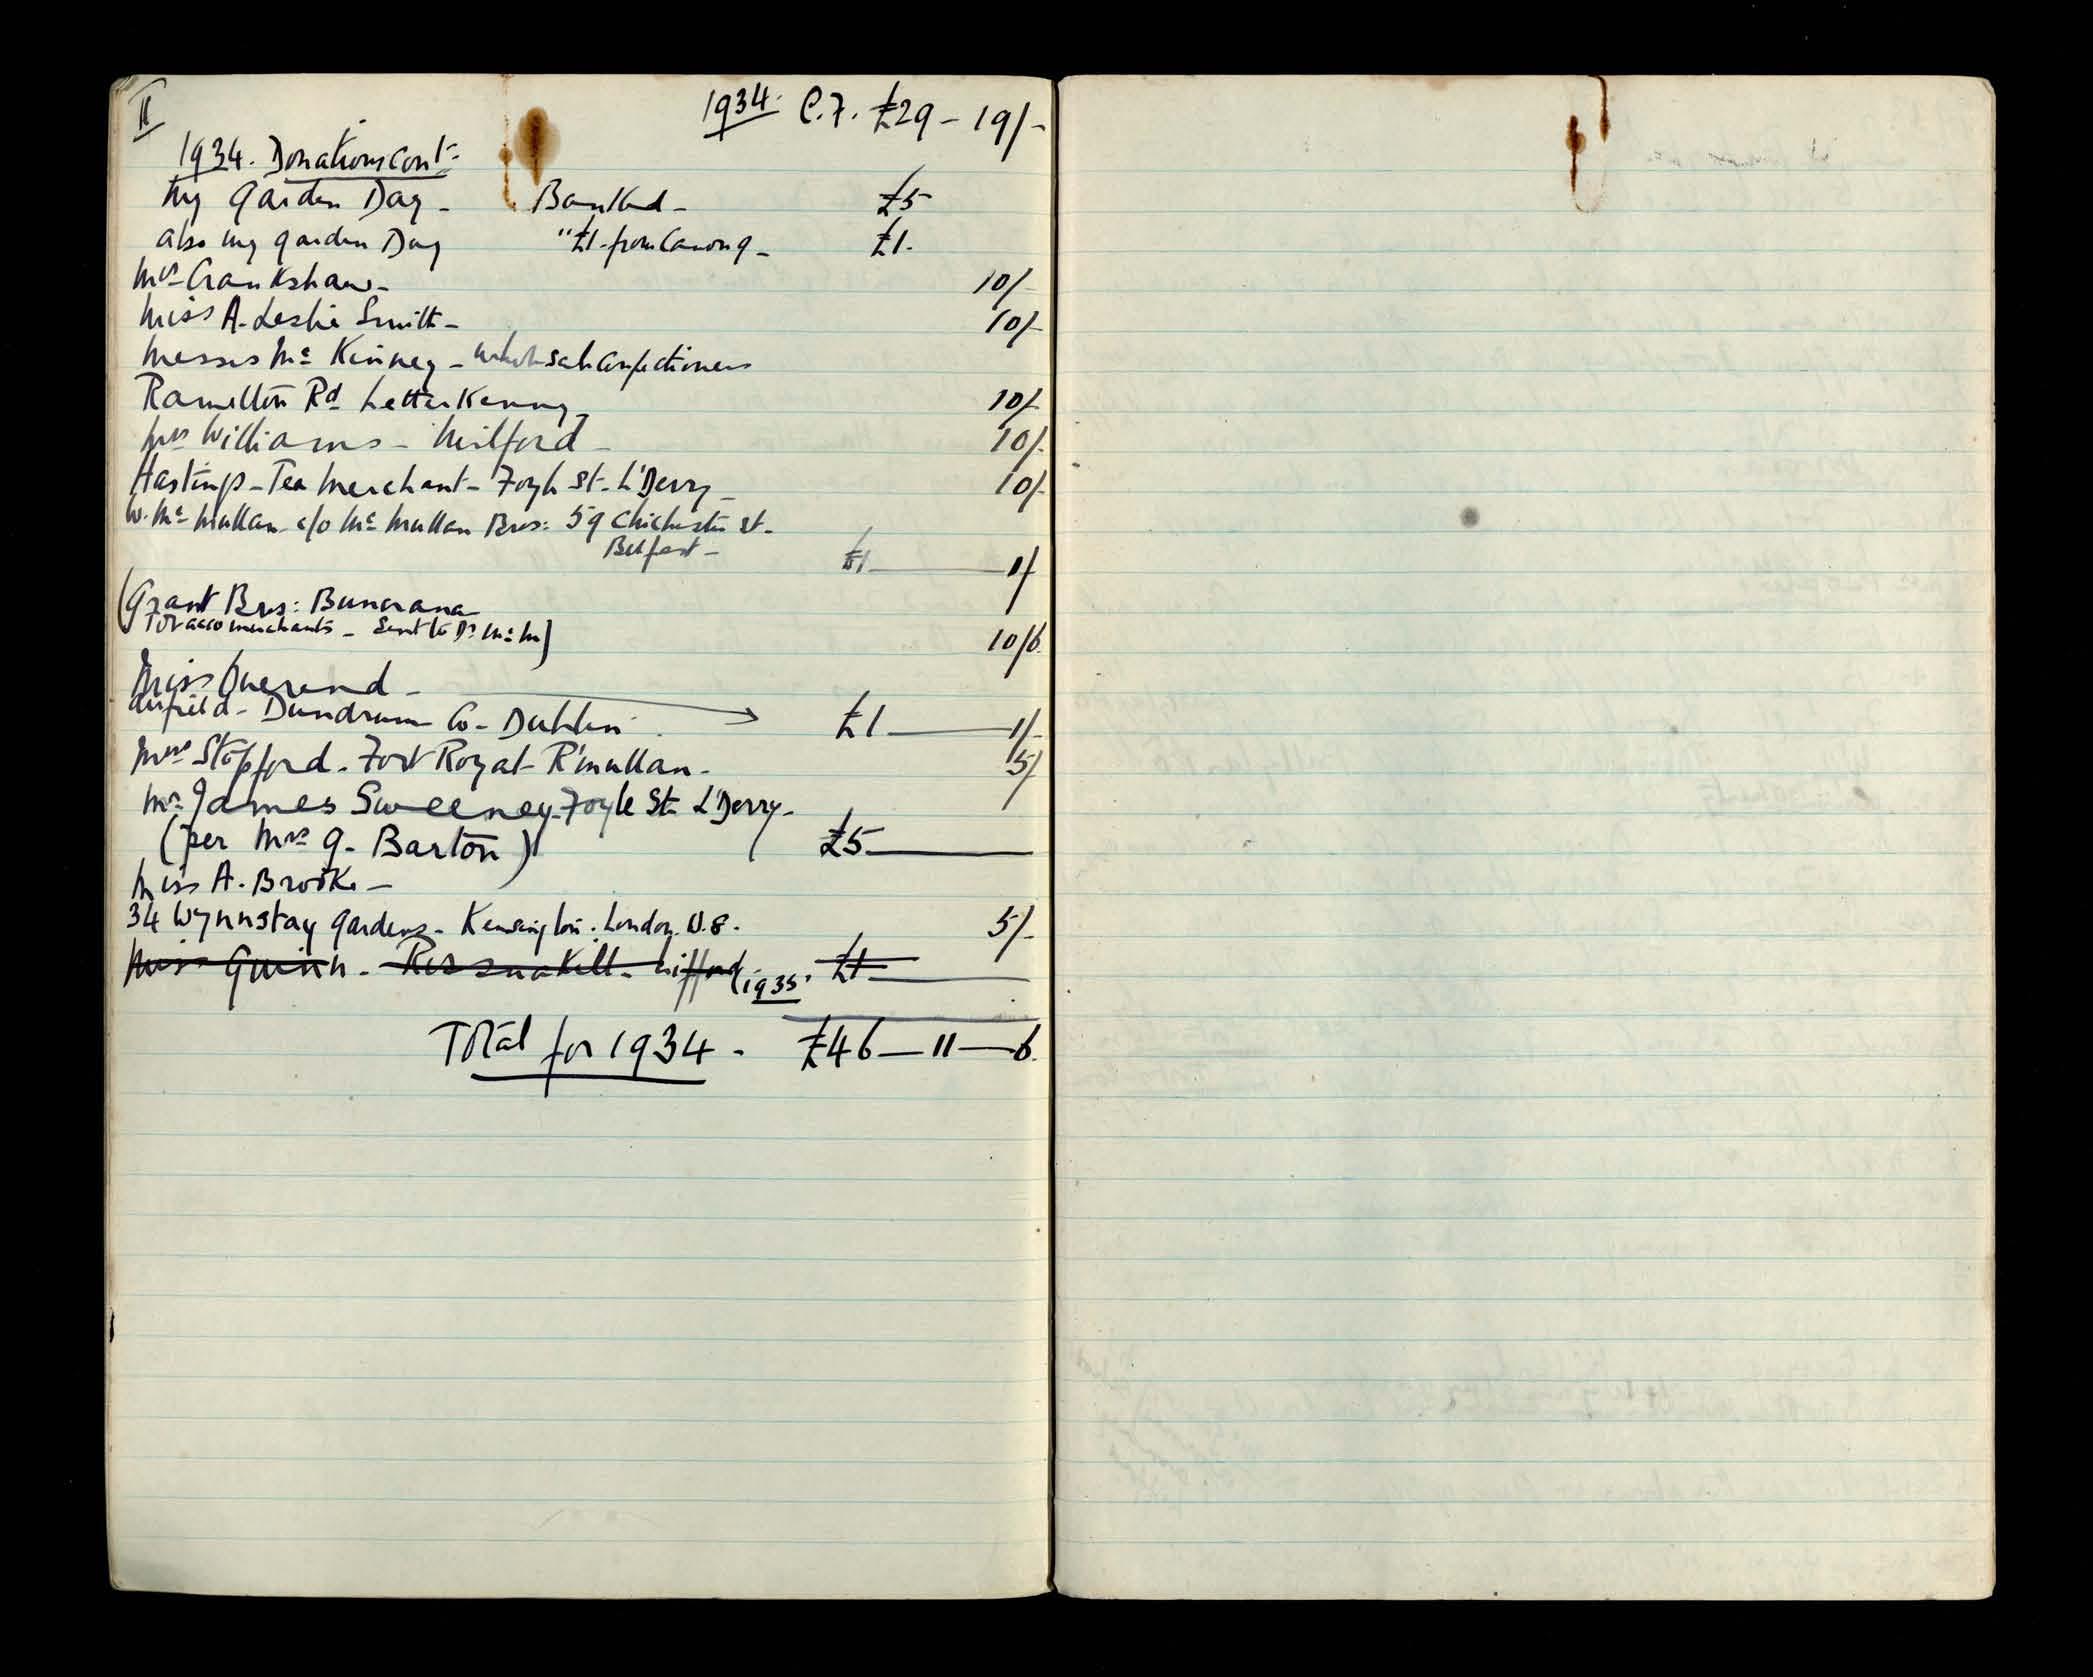 II
1934. C.F. £29 - 19/-
1934. Donations cont-
My Garden Day - Banked - £5
also my garden Day " £1 - from Canon G - £1.
Mrs Crankshaw - 10/-
Miss A. Leslie Smith - 10/-
Messrs Mc Kinney - wholesale Confectioners
Ramelton Rd Letterkenny 10/-
Mrs Williams - Milford - 10/-
Hastings - Tea Merchant - Foyle St - L'Derry - 10/-
W. Mc Mullan c/o Mc Mullan Bros: 59 Chichester St -
Belfast - £1 — 1/
(Grant Bros: Buncrana
Tobacco merchants - Sent to Dr Mc M) 10/6.
Miss Overend -
Airfield - Dundrum Co - Dublin. £1 — 1/-
Mrs Stopford - Fort Royal - R'mullan - 5/
Mr James Sweeney - Foyle St - L'Derry -
(per Mrs G. Barton) £5 —
Miss A. Brooke -
34 Wynnstay Gardens - Kensington. London. W.8. 5/-
Miss Quinn - Rossnakill - Lifford (1935. £1 —
Total for 1934 - £46 — 11 — 6.